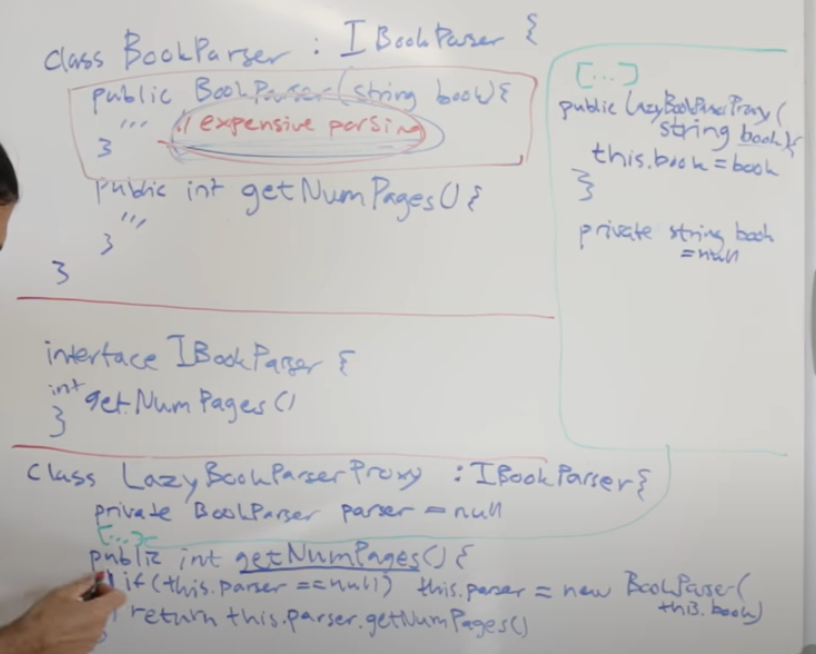 class BookParser : IBookParser {
public BookParser(string book){
''' // expensive parsing
}
public int getNumPages(){
'''
}
}
interface IBookParser {
int getNumPages()
}
class LazyBookParserProxy : IBookParser{
private BookParser parser = null
[...]
public int getNumPages(){
if(this.parser ==null) this.parser = new BookParser(
this.book)
return this.parser.getNumPages()
}
[...]
public LazyBookParserProxy(
string book){
this.book = book
}
private string book
=null